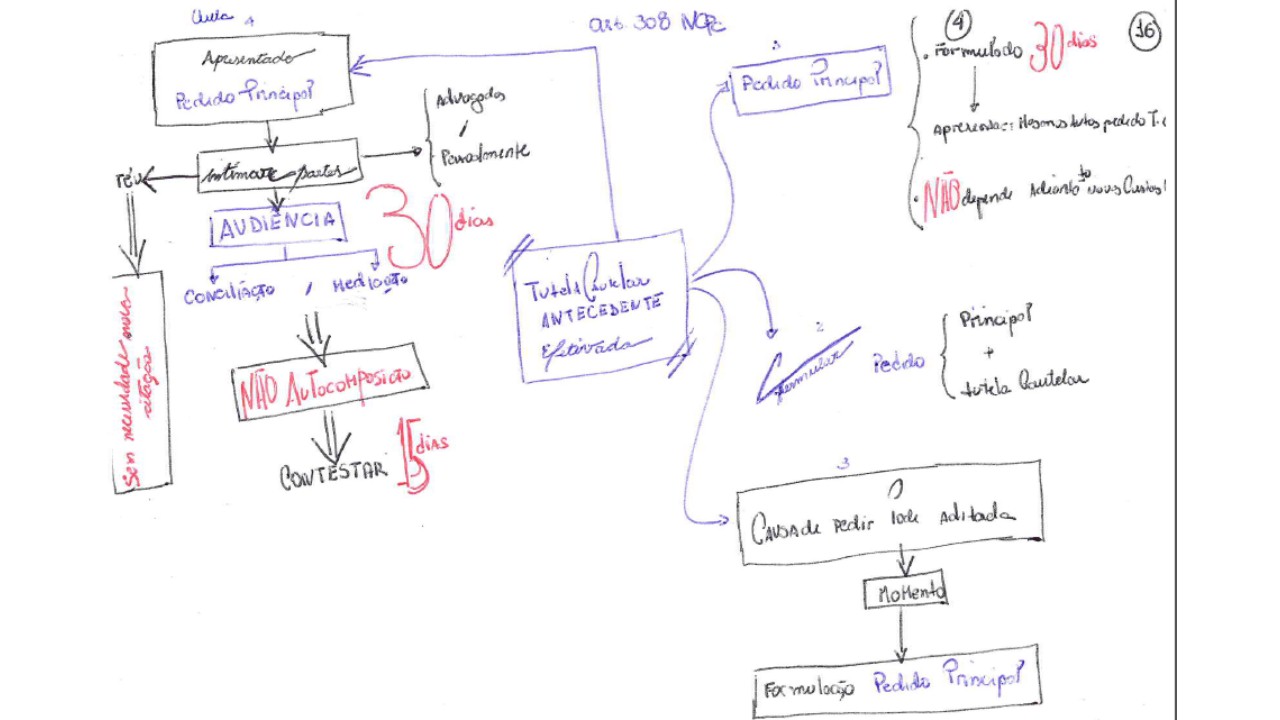 art. 308 NCPC
4
Apresentado
Pedido Principal
intimar partes
Advogados
/
Pessoalmente
réu
AUDIÊNCIA
30 dias
Conciliação / Mediação
Sem necessidade nova
citação
NÃO Autocomposição
CONTESTAR 15 dias
Tutela Cautelar
ANTECEDENTE
Efetivada
Pedido Principal
4
16
. Formulado 30 dias
Apresentado: Mesmos autos pedido T.C
. NÃO depende Adianta/to novas Custas!
2
Formular
Pedido
Principal
+
tutela Cautelar
3
Causa de pedir Pode aditada
Momento
Formulação Pedido Principal